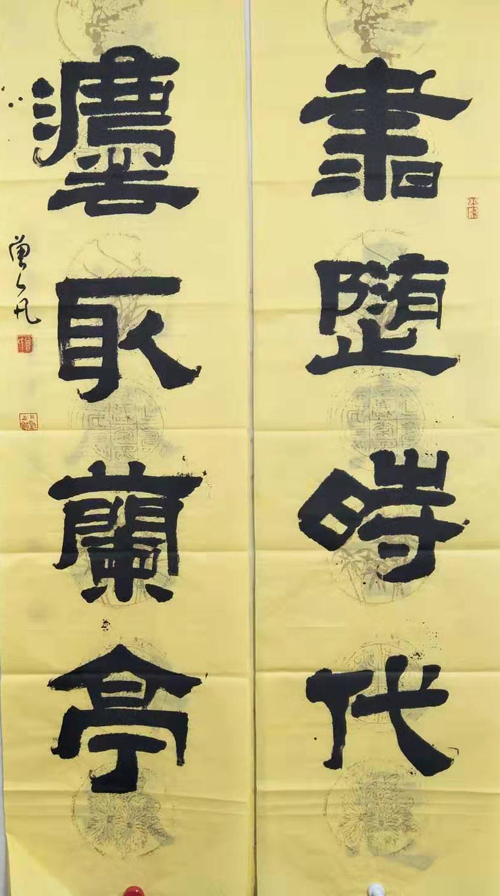 書隨時代
灋取蘭亭